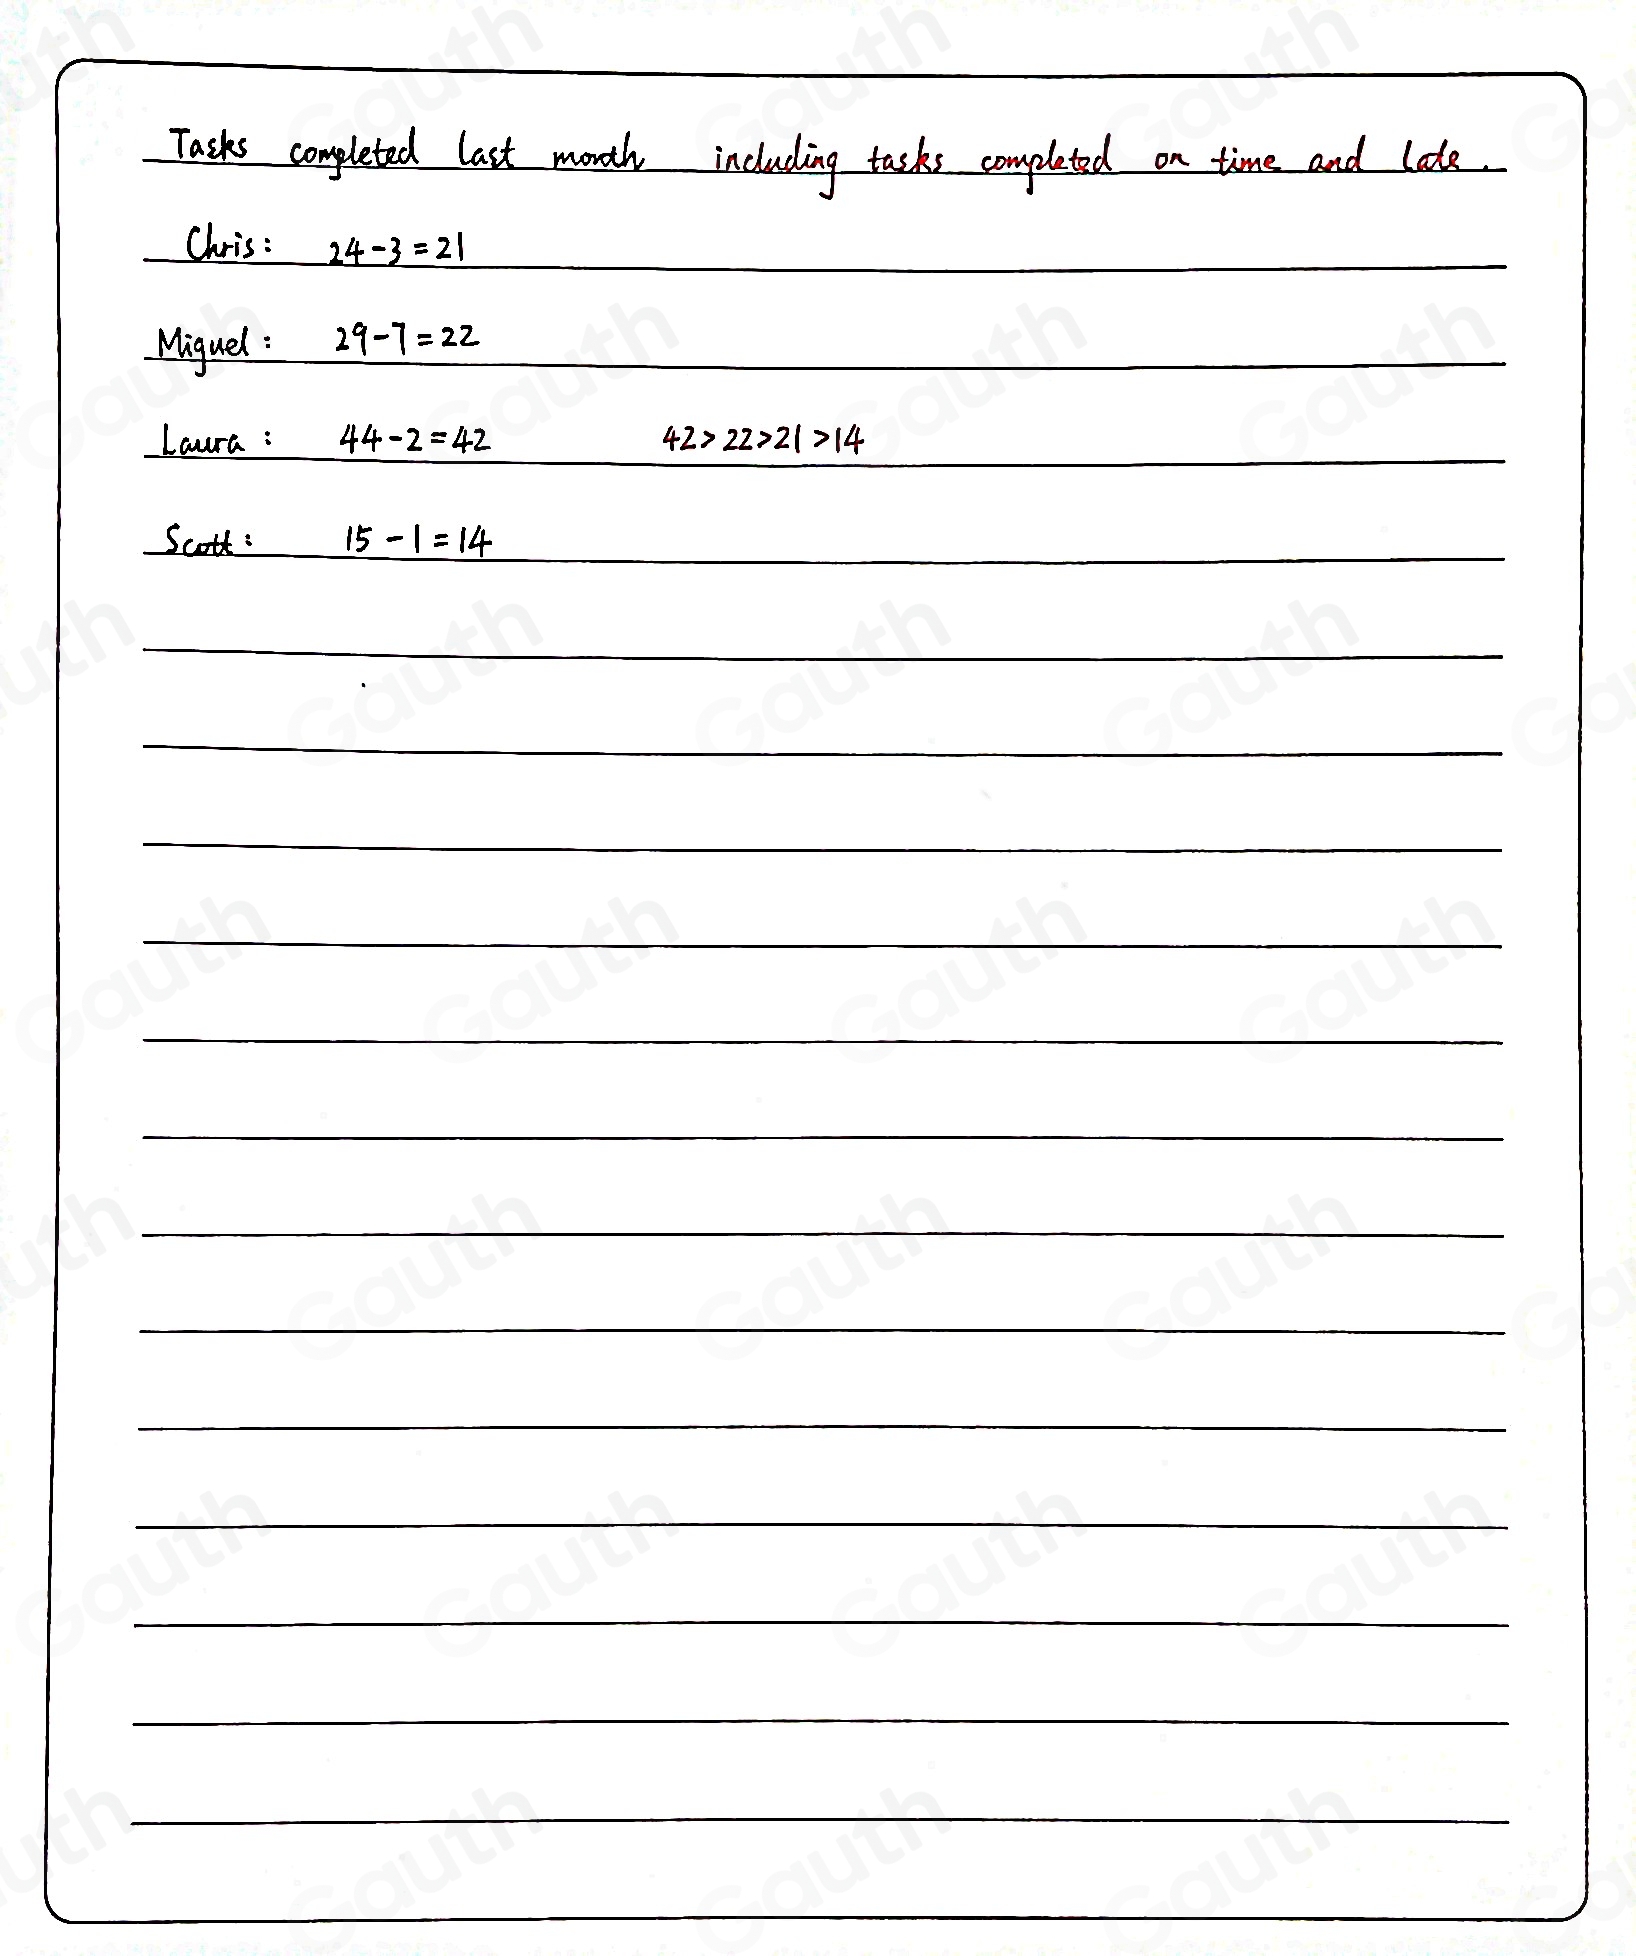 Tasks completed last month including tasks completed on time and late.
Chris: 24-3=21
Miguel: 29-7=22
Laura: 44-2=42 42>22>21>14
Scott: 15-1=14